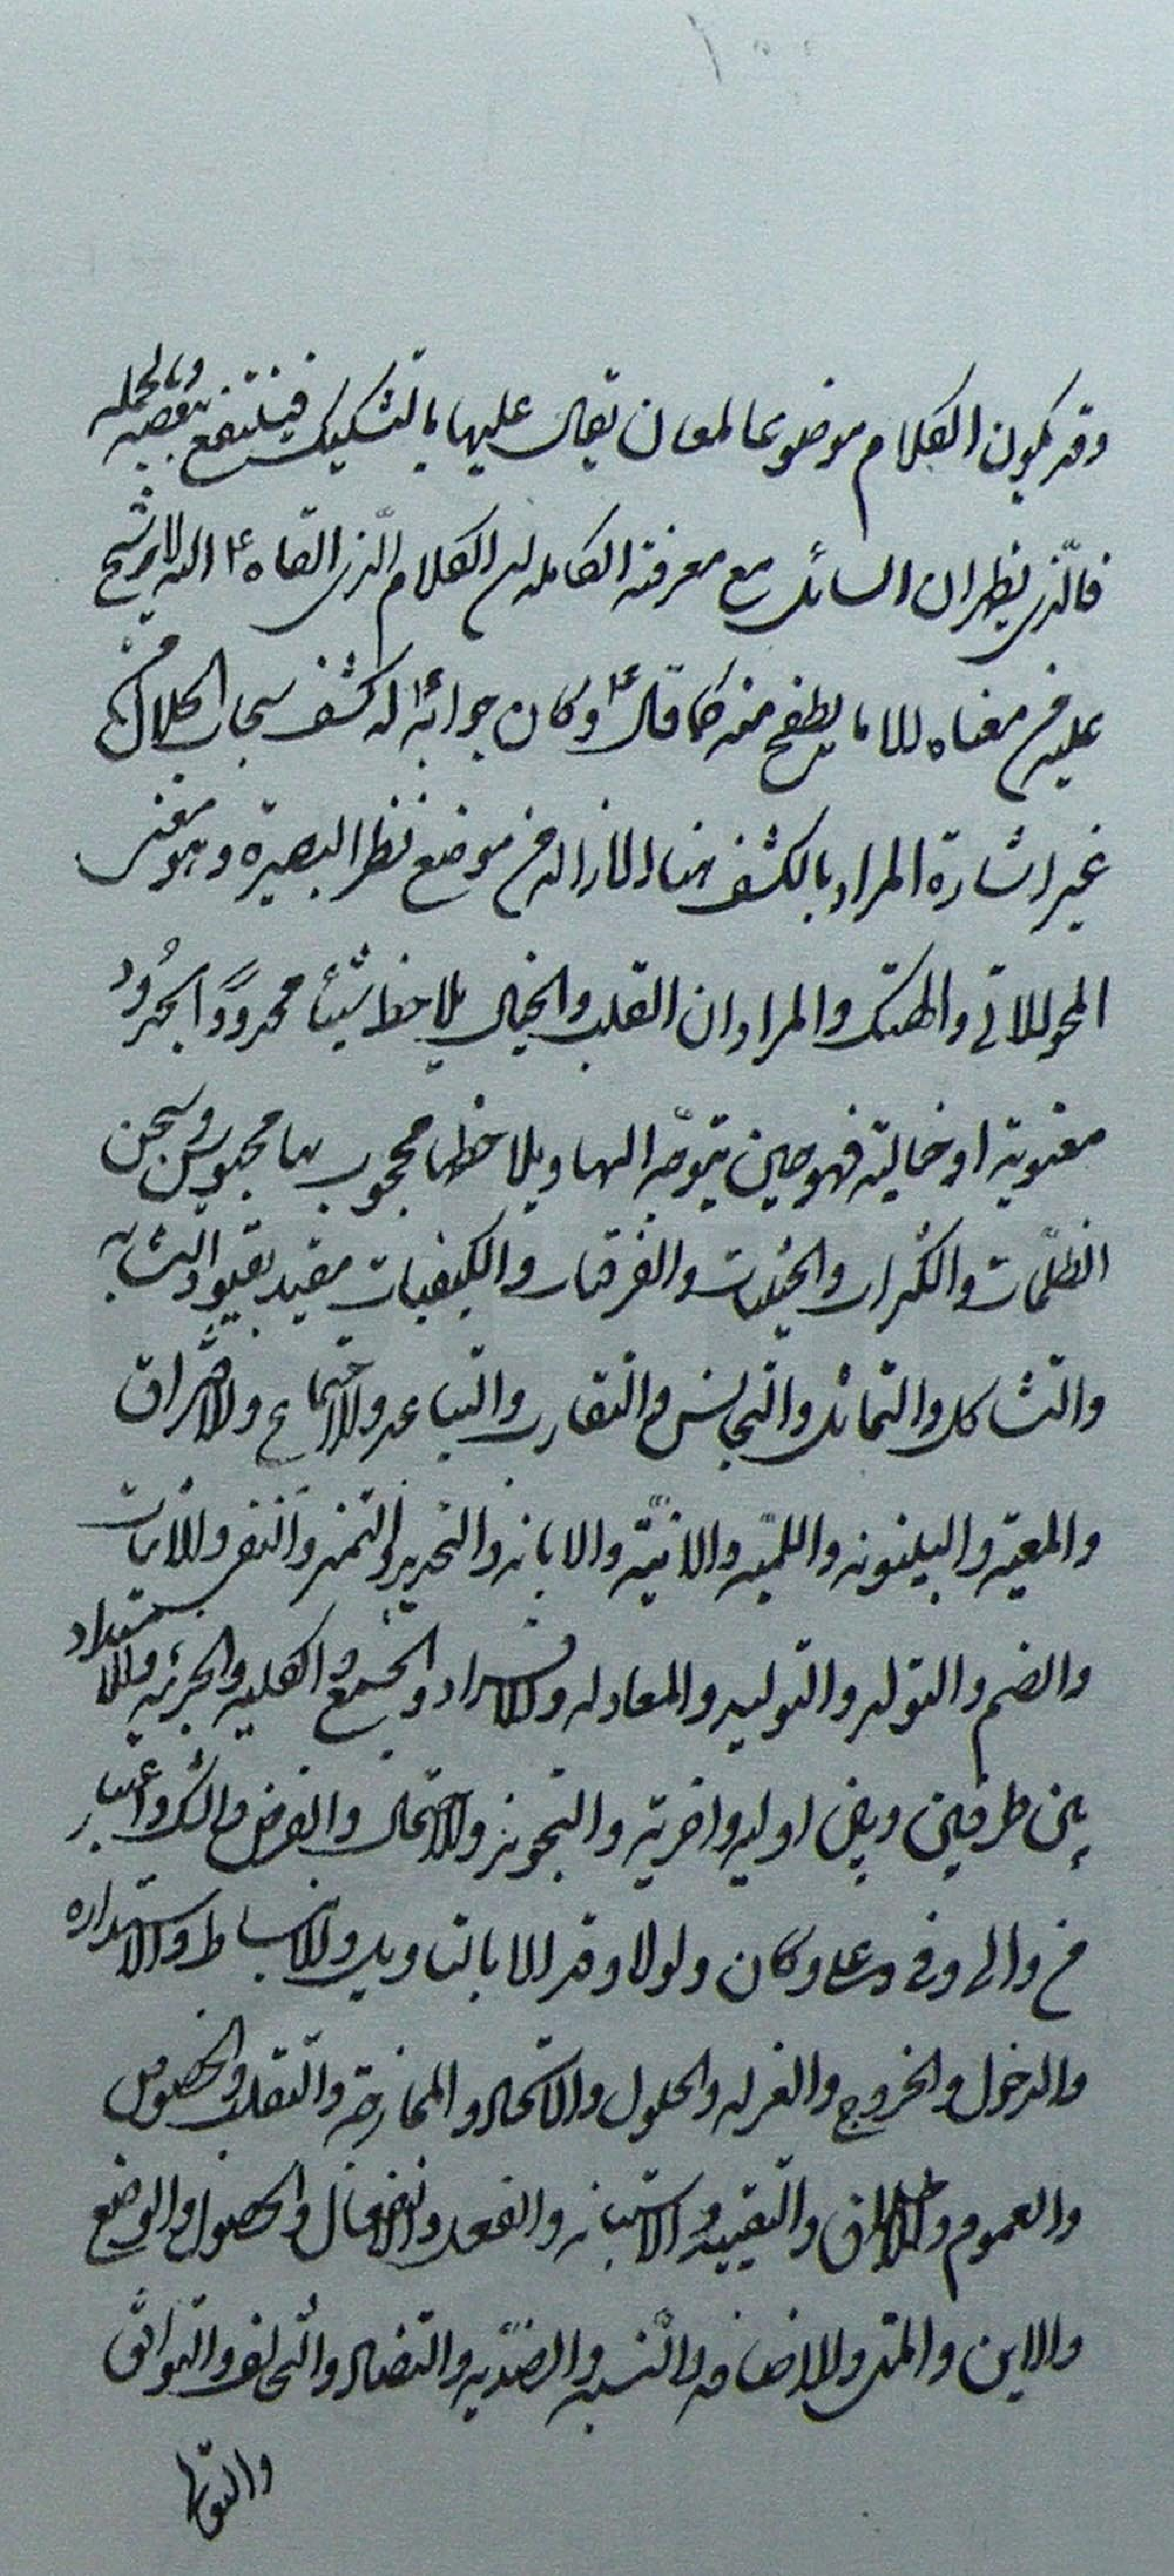 وقد يكون الكلام موضوعا لمعان يقال عليها بالتشكيك فينتفع ببعضه وبالجمله
فالّذى يظهر ان السائل مع معرفته الكامله لان الكلام الّذى القاه ع اليه لا يرشح
عليه من معناه الا ما يطفح منه كما قال ع وكان جوابه ع له كشف سبحات الجلال من
غير اشارة المراد بالكشف هنا الازاله من موضع نظر البصيرة وهو معنى
المحو الاتى والهتك والمراد ان القلب والخيال يلاحظ شيئا محدودًا بحدُود
معنوية او خيالية فهو حين يتوجّه اليها ويلاحظها محجوب بها محبوس فى سجن
الظلمات والكثرات والحيثيات والفرقيات والكيفيات مقيد بقيود التشابه
والتشاكل والتماثل والتجانس والتقارب والتباعد والاجتماع والافتراق
والمعيّة والبينونه واللميّه والانيّة والابانه والتحديد والتمنى والنفى والاثبات
والضم والتولد والتوليد والمعادله والافراد والجمع والكليه والجزئيه والاستعداد
بين طرفين وبين اوليه واخرية والتجويز والاحتمال والفرض والشك واعتبار
من والى وفى وعلى وكان ولولا وقد الا بالتاويل والانبساط والاستداره
والدخول والخروج والعزله والحلول والاتحاد والممازجة والتقلب والخصوص
والعموم والاطلاق والتقييد والاستبانه والفعل والانفعال والحصول والوضع
والاين والمتى والاضافه والنسبه والضدّيه والتضاد والتخالف والتوافق